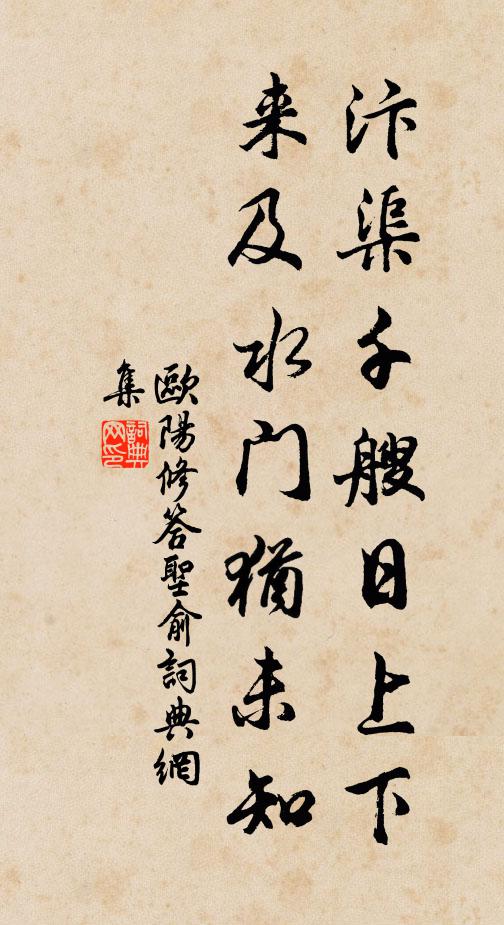 汴渠千艘日上下
来及水门犹未知
歐陽修答聖俞詞典網
集
詞典
网印